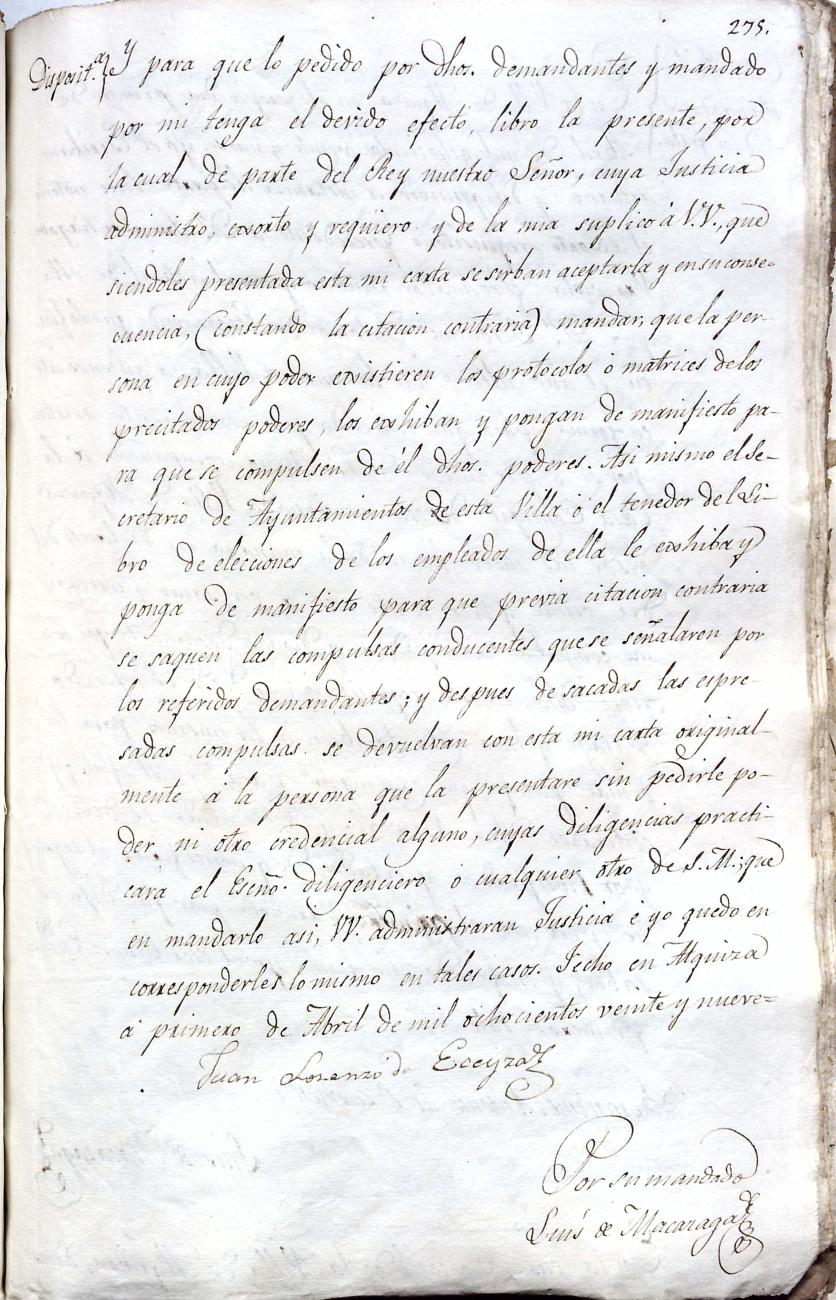 275.
Disposit.ª Y para que lo pedido por dhos. demandantes y mandado
por mi tenga el devido efecto, libro la presente, por
la cual, de parte del Rey nuestro Señor, cuya Justicia
administro, exsorto y requiero y de la mia suplico á V.V., que
siendoles presentada esta mi carta se sirban aceptarla y en su conse-
cuencia, (constando la citacion contraria) mandar, que la per-
sona en cuyo poder exsistieren los protocolos ó matrices de los
precitados poderes, los exshiban y pongan de manifiesto pa-
ra que se compulsen de él dhos. poderes. Asi mismo el Se-
cretario de Ayuntamientos de esta Villa ó el tenedor del Li-
bro de elecciones de los empleados de ella le exshiba y
ponga de manifiesto para que previa citacion contraria
se saquen las compulsas conducentes que se señalaren por
los referidos demandantes; y despues de sacadas las espre-
sadas compulsas se devuelvan con esta mi carta original-
mente á la persona que la presentare sin pedirle po-
der ni otro credencial alguno, cuyas diligencias practi-
cará el Escño. diligenciero ó cualquier otro de S.M.; que
en mandarlo asi, VV. administraran Justicia é yo quedo en
corresponderles lo mismo en tales casos. Fecho en Alquiza
á primero de Abril de mil ochocientos veinte y nueve=
Juan Lorenzo de Eceyza
Por su mandado
Luis de Macazaga